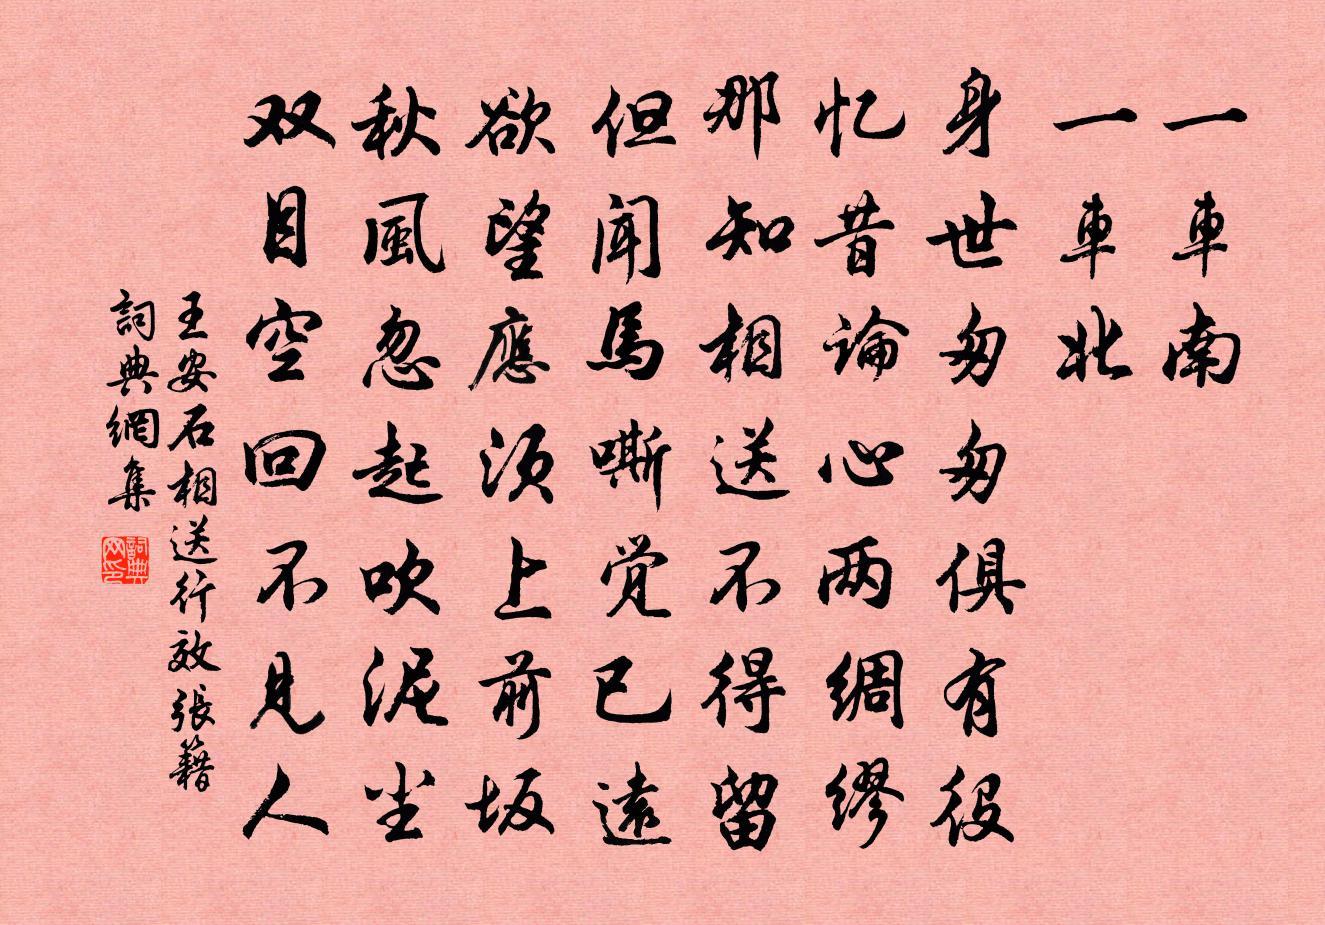 一車南
一車北
身世匆匆俱有役
忆昔論心两绸缪
那知相送不得留
但闻馬嘶觉已遠
欲望應须上前坂
秋風忽起吹泥尘
双目空回不見人
王安石相送行效張籍
詞典網集
詞典网印